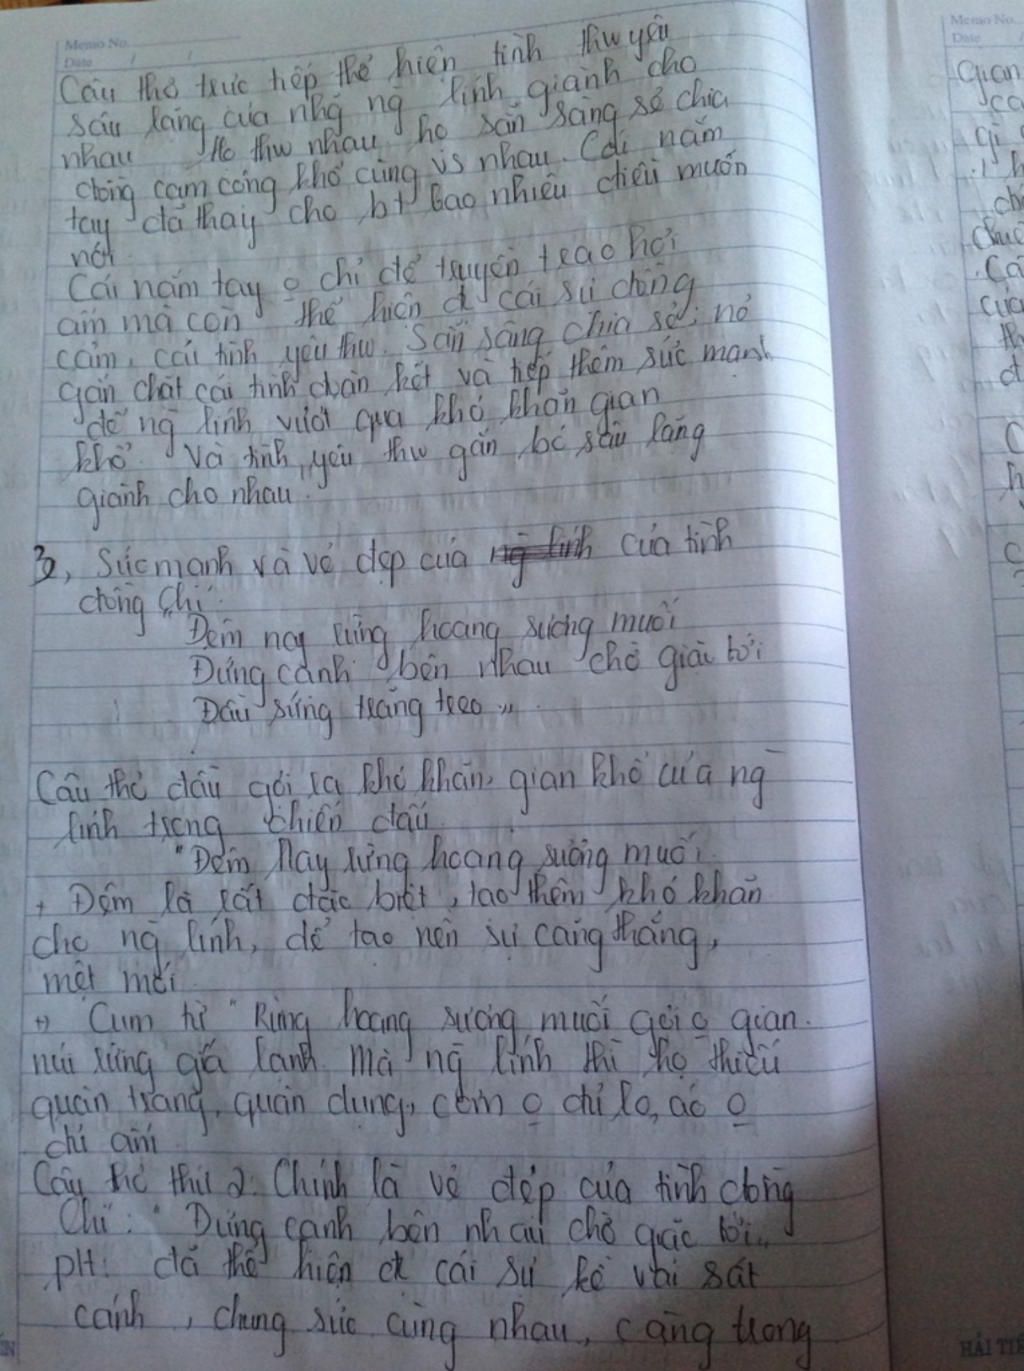 Memo No.
Date / /
Câu thơ trực tiếp thể hiện tình thw yêu
sâu lắng của nhg ng̃ lính giành cho
nhau Họ thw nhau họ sẵn sàng sẻ chia
đồng cam cộng khổ cùng vs nhau. Cái nắm
tay đã thay cho bt bao nhiêu điều muốn
nói.
Cái nắm tay o chỉ để truyền trao hơi
ấm mà còn thể hiện đc cái sự đồng
cảm, cái tình yêu thw. Sẵn sàng chia sẻ, nó
gắn chặt cái tình đoàn kết và tiếp thêm sức mạnh
để ng̃ lính vượt qua khó khăn gian
khổ. Và tình yêu thw gắn bó sâu lắng
giành cho nhau.
3, Sức mạnh và vẻ đẹp của của tình
đồng chí.
"Đêm nay rừng hoang sương muối
Đứng cạnh bên nhau chờ giặc tới
Đầu súng trăng treo".
Câu thơ đầu gợi ra khó khăn, gian khổ của ng̃
lính trong chiến đấu.
"Đêm nay rừng hoang sương muối.
+ Đêm là rất đặc biệt, tạo thêm khó khăn
cho ng̃ lính, dễ tạo nên sự căng thẳng,
mệt mỏi.
+) Cụm từ "Rừng hoang sương muối gợi o gian.
núi rừng giá lạnh. Mà ng̃ lính thì họ thiếu
quân trang, quân dụng, cơm o chỉ lo, áo o
chỉ ấm
Câu thơ thứ 2: Chính là vẻ đẹp của tình đồng
Chí: "Đứng cạnh bên nhau chờ giặc tới"
pH: đã thể hiện đc cái sự kề vai sát
cánh, chung sức cùng nhau, càng trong
Memo No.
Date /
HẢI TI